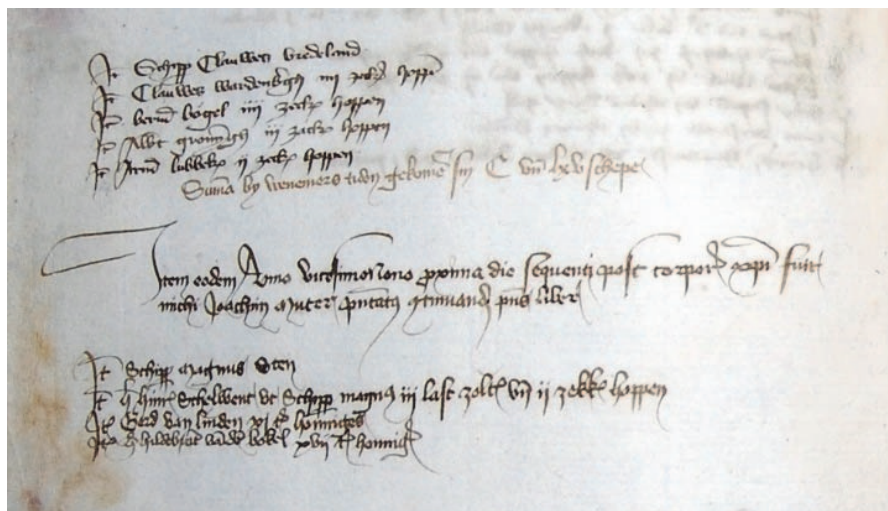 It Schipp Clawes vredeland
It Clawes wardenbergh iiii zeck hopp
It bernd bogel iiii zeck hoppen
It Albt gronigh iii zack hoppen
It Arnd lubbeke ii zeck hoppen
Suma by wenemers tiden gekome sin C vn schepe
Item eodem Anno vicesimonono proxima die sequenti post corpor xpi fuit
michi Joachin muter pntatus gtinuand pns liber
It Schipp magnus Sten
It h hinr Schelwent de Schipp magnus iii last zolt vn ii zekke hoppen
It Gerd van linden xi t honniges
It h hildebrant van de bokel xvii t honnig